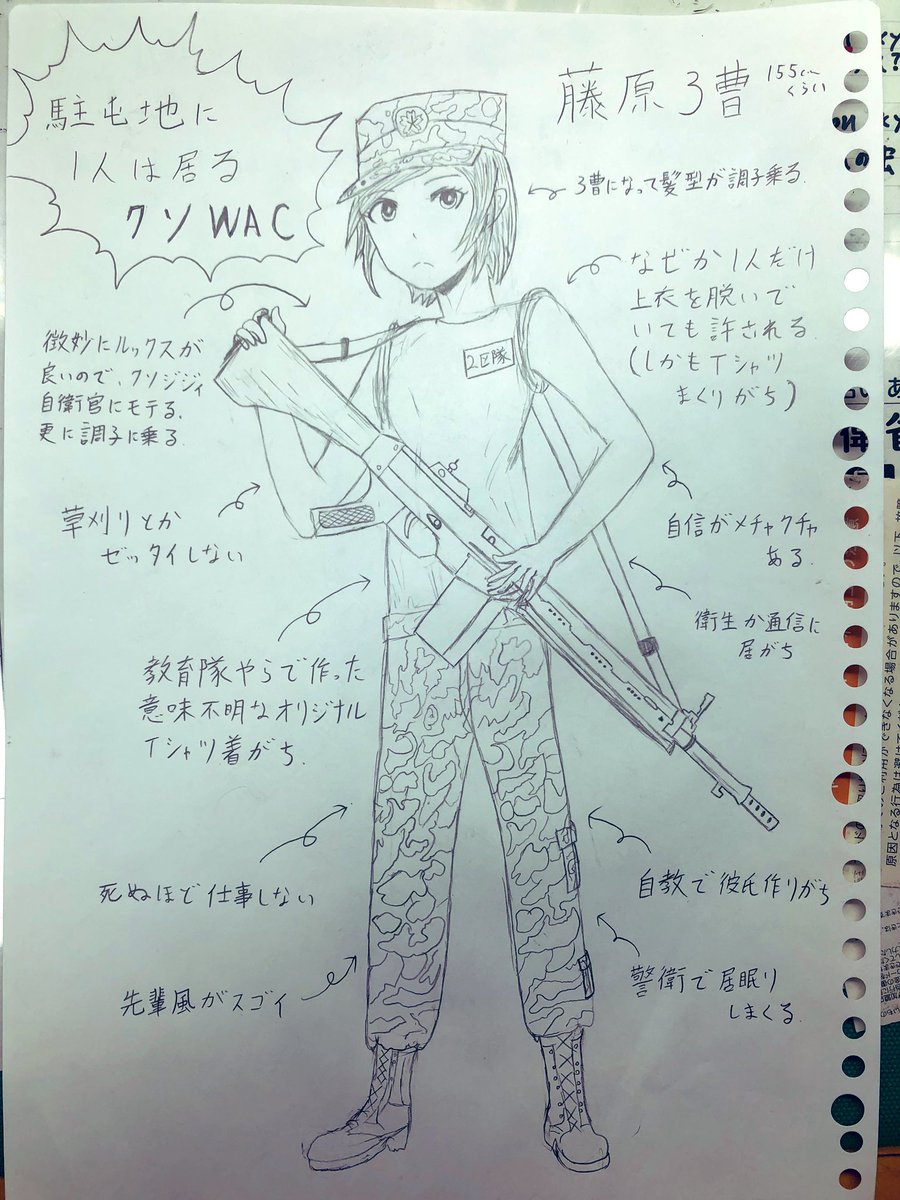 駐屯地に
1人は居る
クソWAC
藤原3曹
155cm
くらい
3曹になって髪型が調子乗る.
なぜか1人だけ
上衣を脱いで
いても許される
(しかもTシャツ
まくりがち)
微妙にルックスが
良いので、クソジジイ
自衛官にモテる.
更に調子に乗る.
2区隊
草刈りとか
ゼッタイしない
自信がメチャクチャ
ある.
衛生か通信に
居がち
教育隊やらで作った
意味不明なオリジナル
Tシャツ着がち.
死ぬほど仕事しない
自教で彼氏作りがち
先輩風がスゴイ
警衛で居眠り
しまくる.
原因となる行為は避けてく